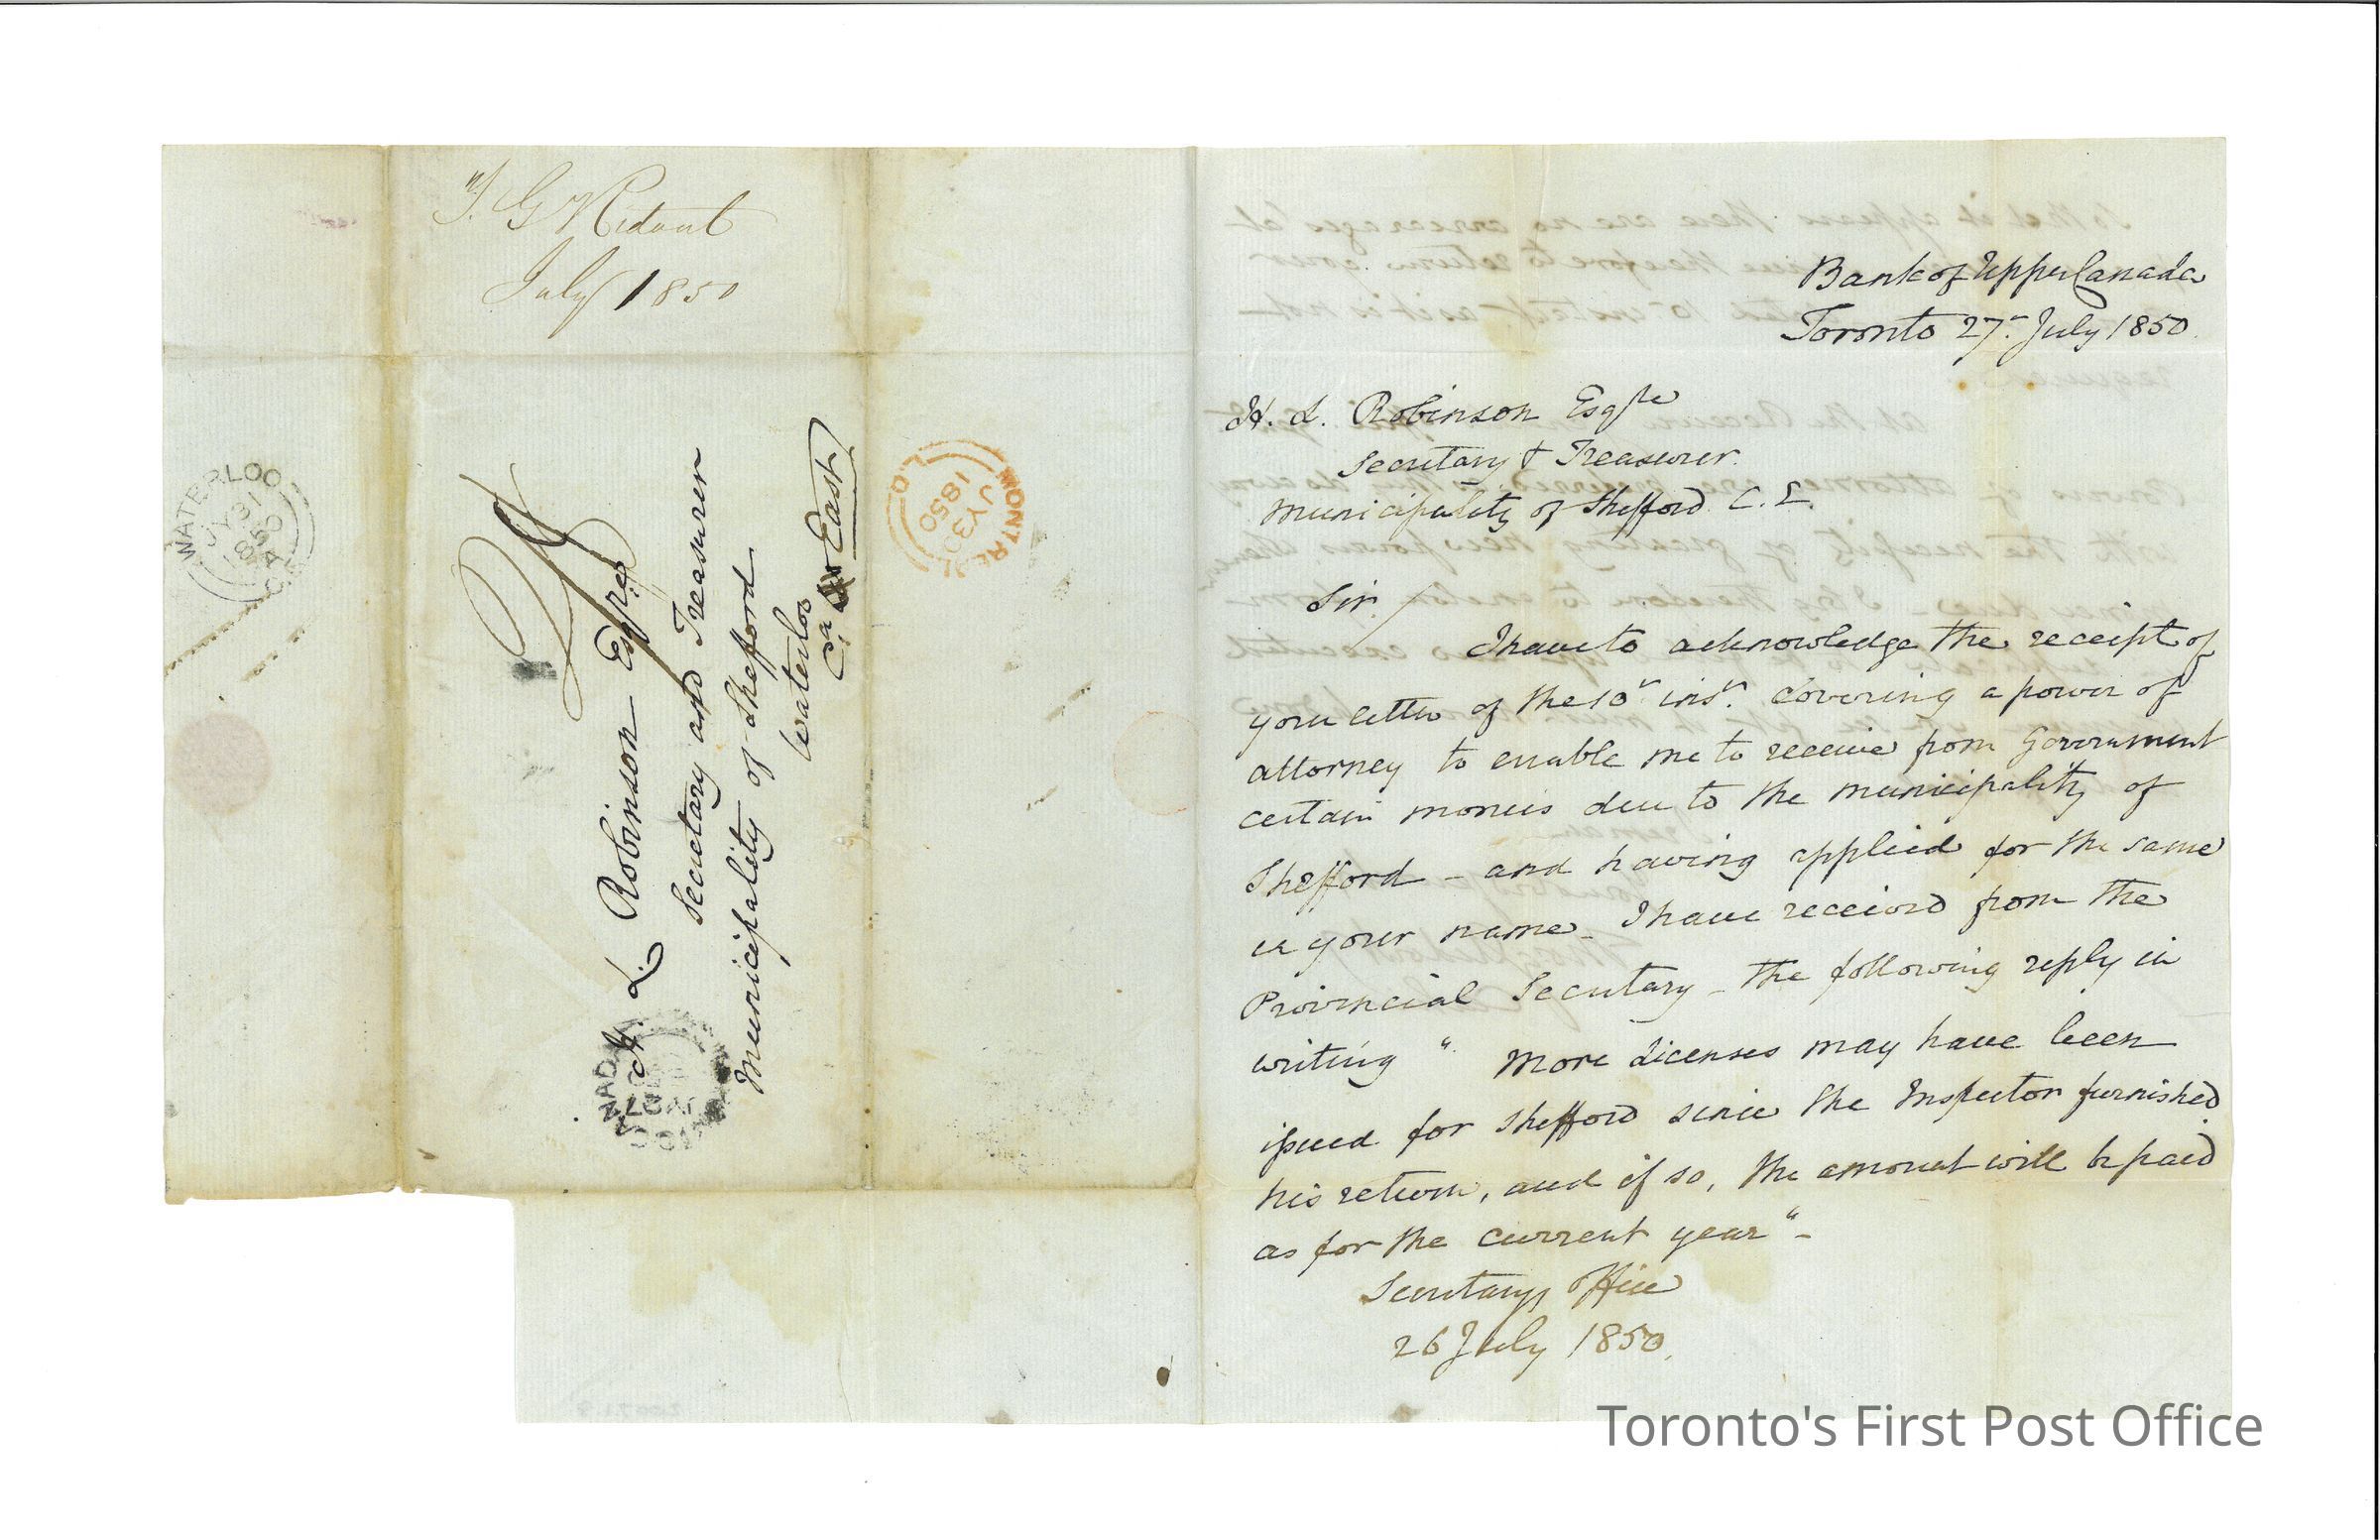 T. G Ridout
July 1850
H. L. Robinson Esqre
Secretary and Treasurer
Municipality of Shefford
Waterloo
Ca East
WATERLOO
JY 31
1850
MONTREAL
JY 30
1850
L.C.
Bank of Upper Canada
Toronto 27th July 1850
H. L. Robinson Esqre
Secretary & Treasurer
Municipality of Shefford C. E.
Sir /
I have to acknowledge the receipt of
your letter of the 10th inst. covering a power of
attorney to enable me to receive from Government
certain monies due to the municipality of
Shefford – and having applied for the same
in your name – I have received from the
Provincial Secretary – the following reply in
writing " More Licenses may have been
issued for Shefford since the Inspector furnished
his return, and if so, the amount will be paid
as for the current year" –
Secretarys Office
26 July 1850.
Toronto's First Post Office